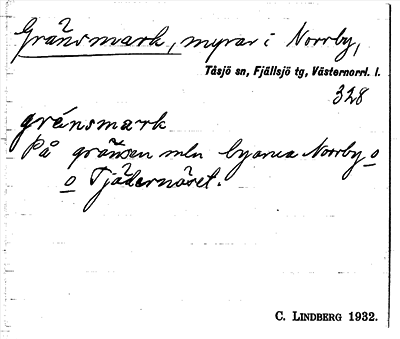 Gränsmark, myrar i Norrby,
Tåsjö sn, Fjällsjö tg, Västernorrl. l.
328
grénsmark
På gränsen mln byarna Norrby o
o Tjädernäset.
C. LINDBERG 1932.